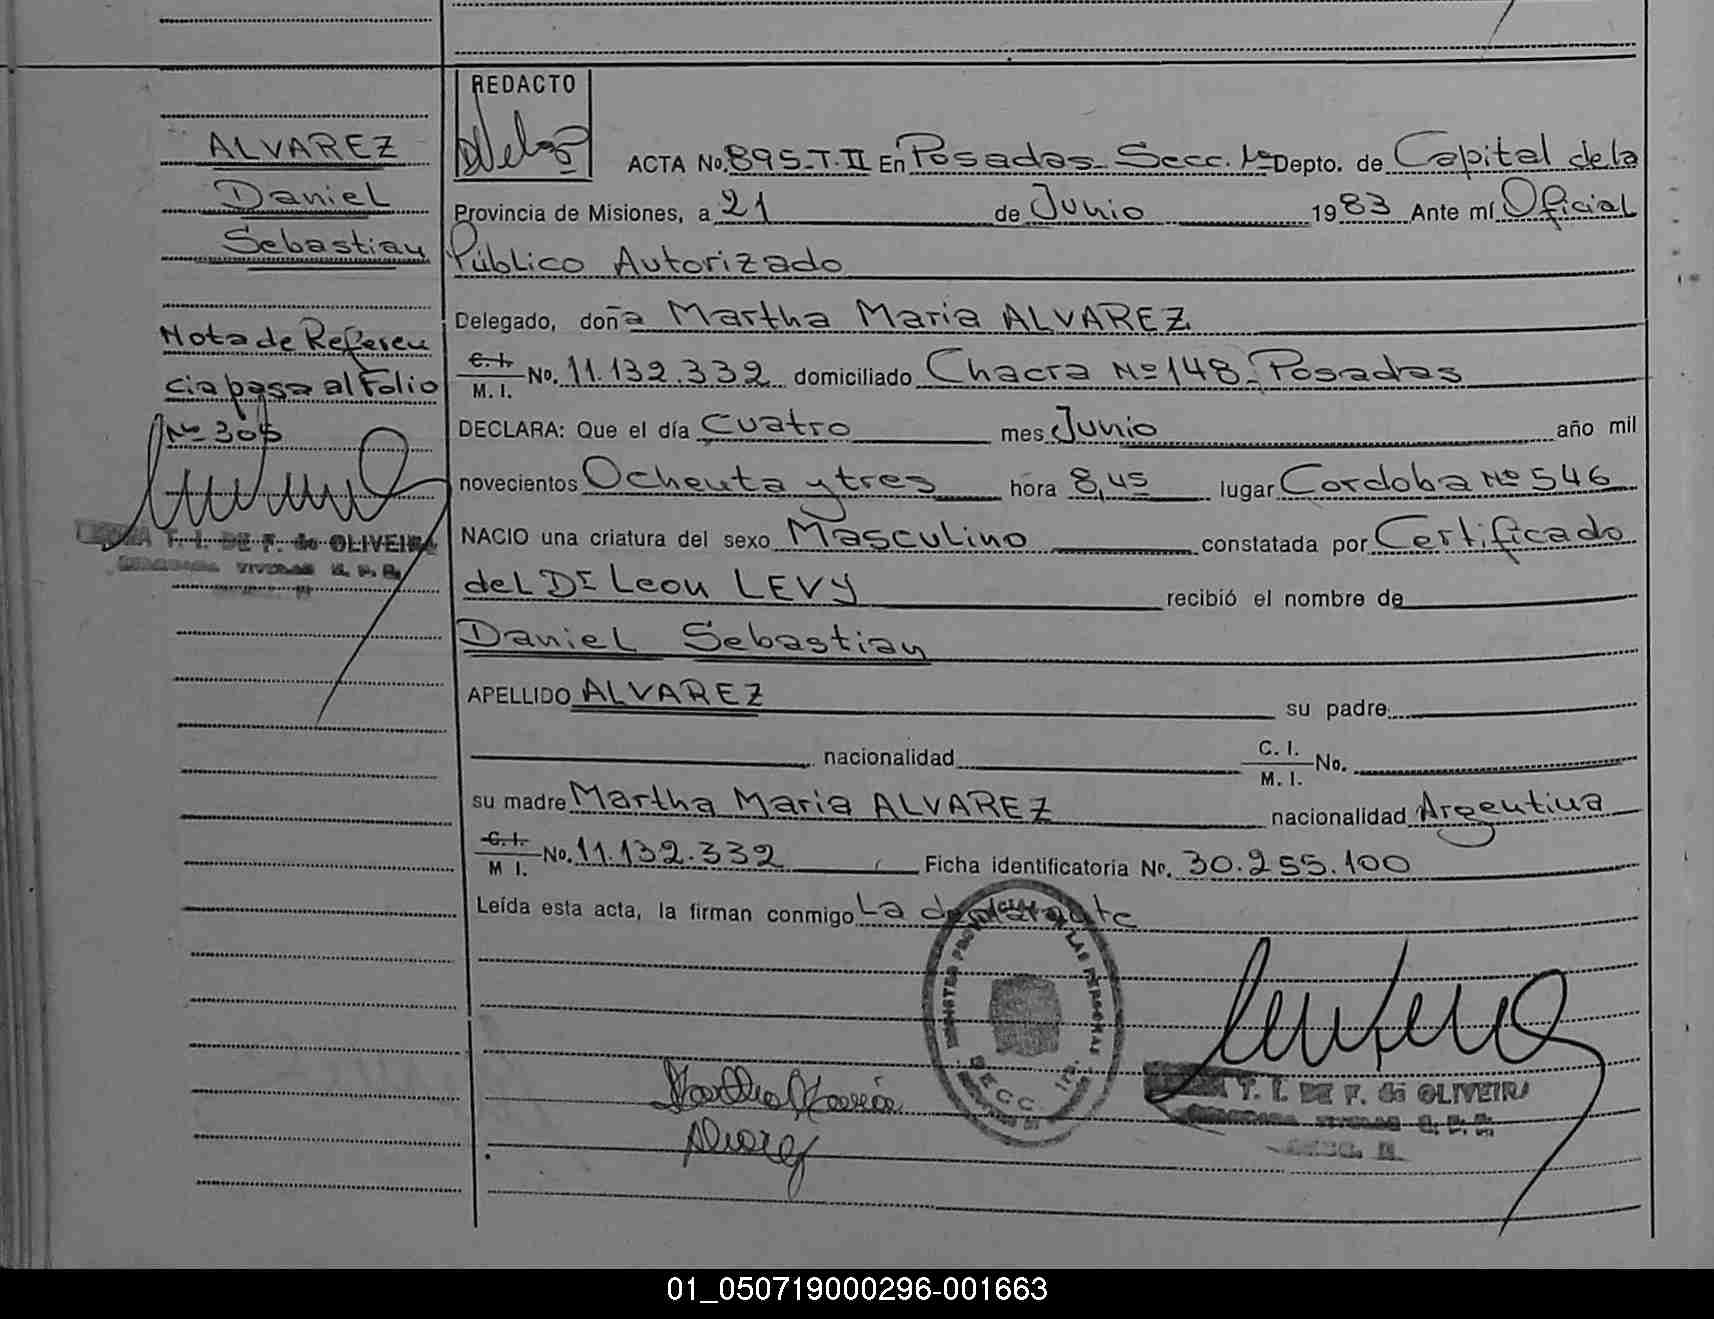 REDACTO
ALVAREZ
Daniel
Sebastian
Nota de Referen
cia pasa al Folio
Nº 305
T. I. DE F. de OLIVEIRA
ACTA No. 895-T-II En Posadas- Secc. 1ª Depto. de Capital de la
Provincia de Misiones, a 21 de Junio 1983 Ante mí Oficial
Público Autorizado
Delegado, doña Martha Maria ALVAREZ
C. I. M. I. No. 11.132.332 domiciliado Chacra Nº 148- Posadas
DECLARA: Que el día Cuatro mes Junio año mil
novecientos Ochenta y tres hora 8,45 lugar Cordoba Nº 546
NACIO una criatura del sexo Masculino constatada por Certificado
del Dr Leon LEVY recibió el nombre de
Daniel Sebastian
APELLIDO ALVAREZ su padre
nacionalidad C. I. M. I. No.
su madre Martha Maria ALVAREZ nacionalidad Argentina
C. I. M I. No. 11.132.332 Ficha identificatoria No. 30.255.100
Leída esta acta, la firman conmigo La declarante
LAS PERSONAS
SECC
Martha Maria
Alvarez
T. I. DE F. de OLIVEIRA
01_050719000296-001663